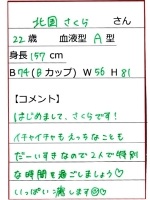 北国さくら さん
22歳 血液型 A型
身長157cm
B74(Bカップ) W56 H81
【コメント】
はじめまして、さくらです!
イチャイチャもえっちなことも
だーいすきなので2人で特別
な時間を過ごしましょう♡
いっぱい癒します☺♡